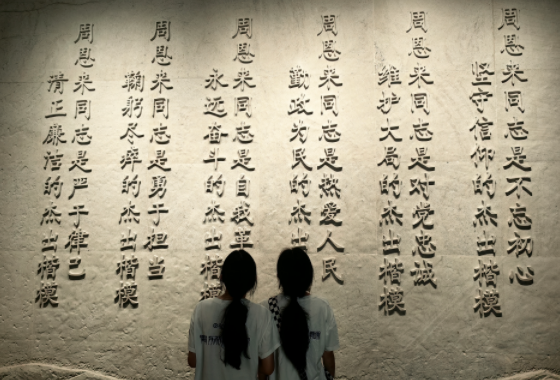 周恩来同志是不忘初心
坚守信仰的杰出楷模
周恩来同志是对党忠诚
维护大局的杰出楷模
周恩来同志是热爱人民
勤政为民的杰出
周恩来同志是自我革
永远奋斗的杰出楷模
周恩来同志是勇于担当
鞠躬尽瘁的杰出楷模
周恩来同志是严于律己
清正廉洁的杰出楷模